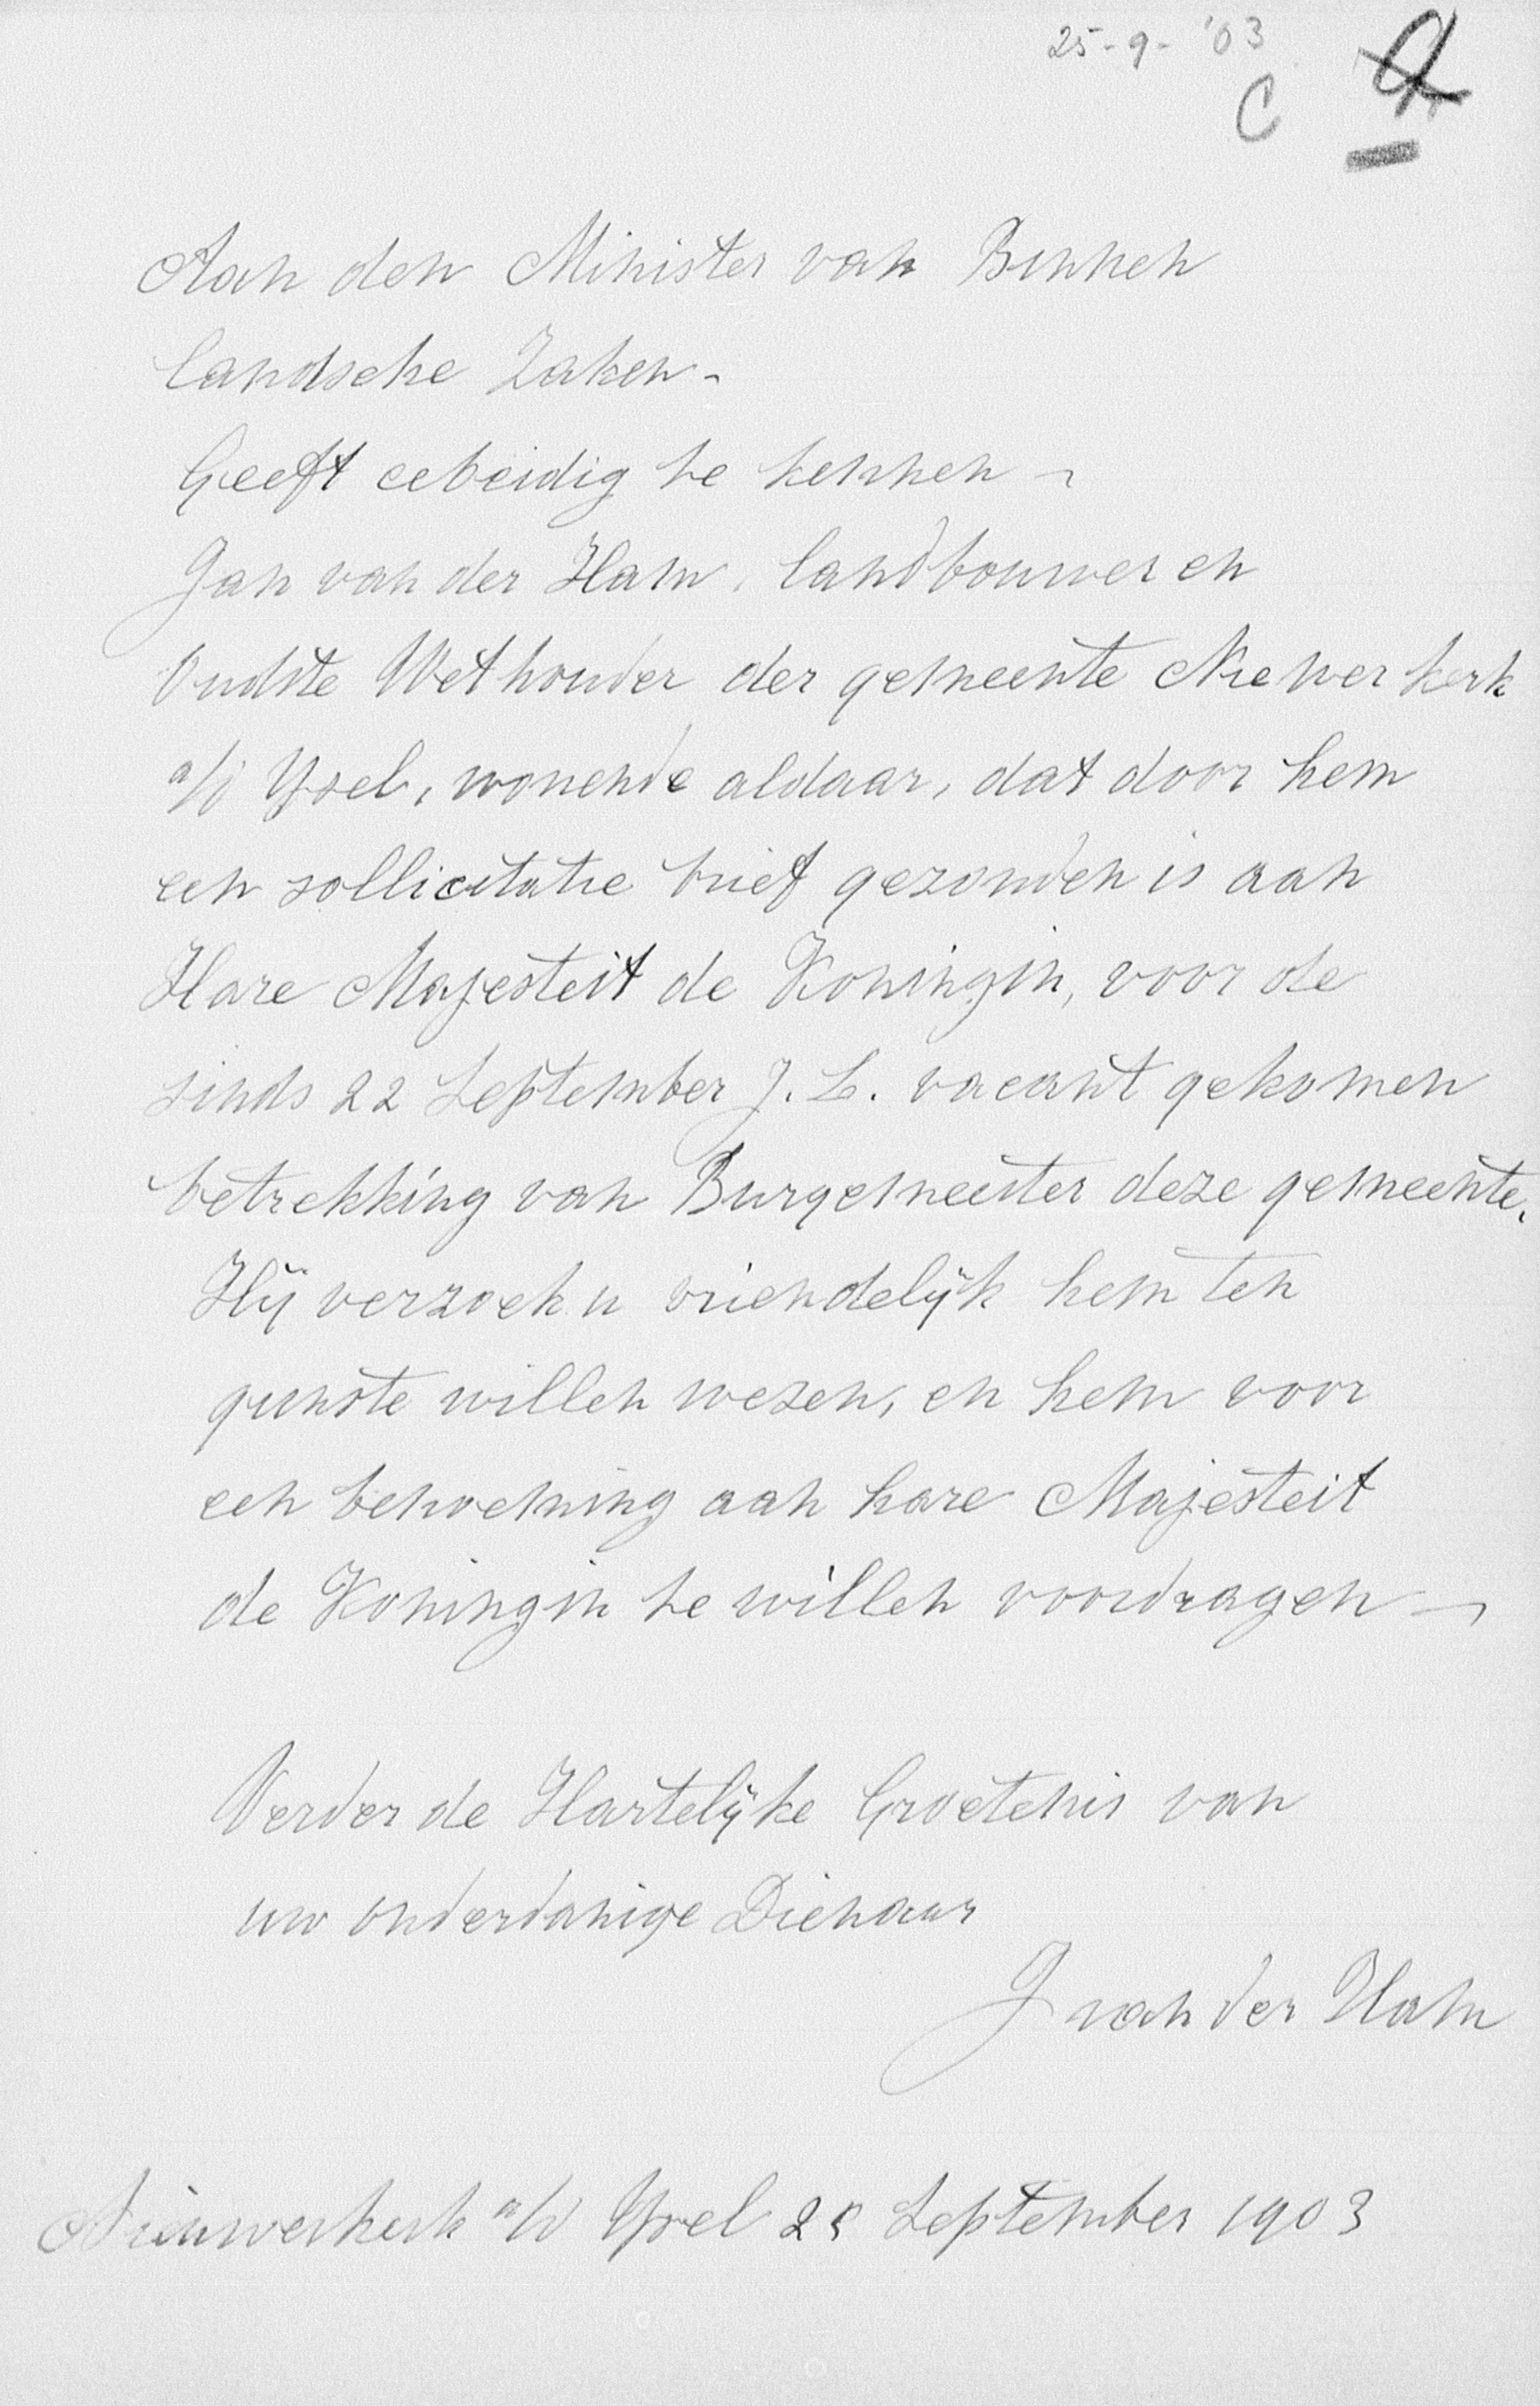 25-9-'03
C
Aan den Minister van Binnen
landsche Zaken -
Geeft eebeidig te kennen -
Jan van der Ham, landbouwer en
Oudste Wethouder der gemeente Niewerkerk
a/d Ysel, wonende aldaar, dat door hem
een sollicitatie brief gezonden is aan
Hare Majesteit de Koningin, voor de
sinds 22 September J.L. vacant gekomen
betrekking van Burgemeester deze gemeente.
Hij verzoek u vriendelijk hem ten
gunste willen wezen, en hem voor
een benoeming aan hare Majesteit
de Koningin te willen voordragen -
Verder de Hartelijke Groetenis van
uw onderdanige Dienaar
J van der Ham
Nieuwerkerk a/d Ysel 25 September 1903